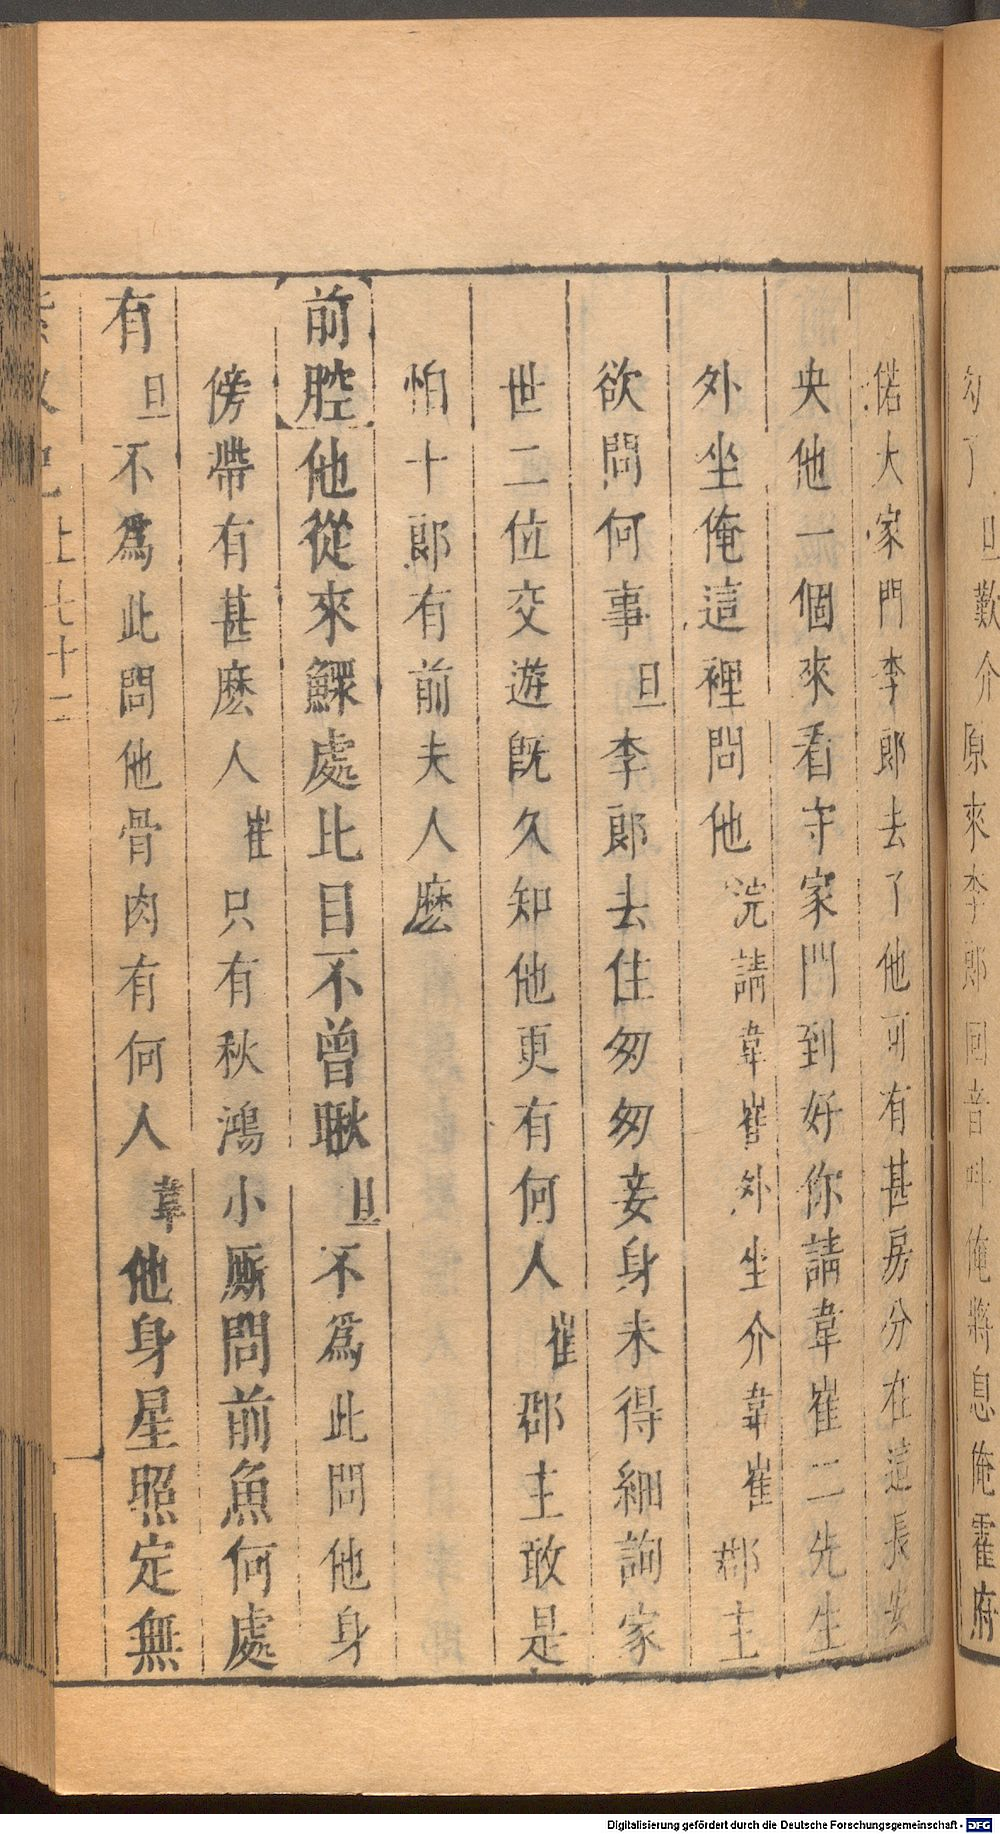 匆了旦歎介原來李郎回音叫俺將息俺霍府
偌大家門李郎去了他可有甚房分在這長安
央他一個來看守家門到好你請韋崔二先生
外坐俺這裡問他浣請韋崔外坐介韋崔郡主
欲問何事旦李郎去住匆匆妾身未得細詢家
世二位交遊既久知他更有何人崔郡主敢是
怕十郎有前夫人麽
前腔他從來鰥處比目不曾瞅旦不爲此問他身
傍帶有甚麽人崔只有秋鴻小厮問前魚何處
有旦不爲此問他骨肉有何人韋他身星照定無
紫釵記上七十二
Digitalisierung gefördert durch die Deutsche Forschungsgemeinschaft - DFG